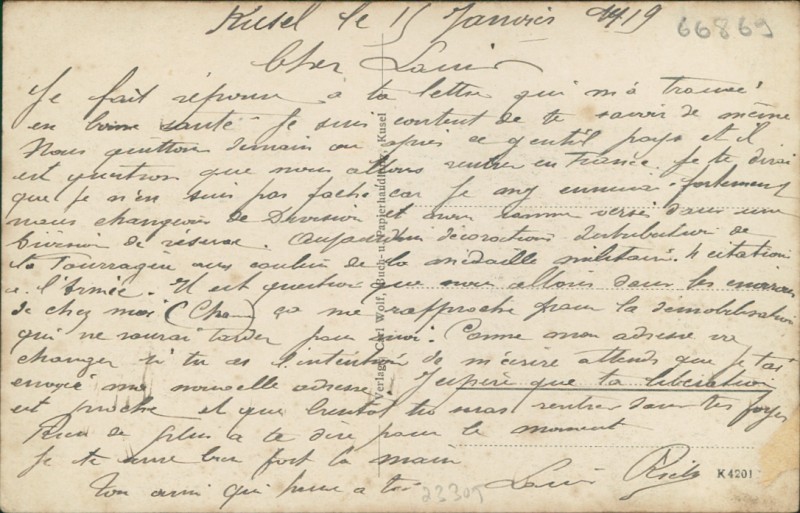 Kusel le 15 Janvier 1919
66869
Cher Louis
Je fait réponse à ta lettre qui m'a trouvé
en bonne santé Je suis content de te savoir de même
Nous quittons demain ou après ce gentil pays et il
est question que nous allons rentrer en France. Je te dirai
que je n'en suis pas faché car Je m'y ennuie fortement
nous changeons de Division et nous sommes versés dans une
Division de réserve. Aujourdhui décorations distribution de
la Fourragère aux couleurs de la médaille militaire. 4 citations
a l'Armée. Il est question que nous allons dans les environs
de chez moi ( ça me rapproche pour la démobilisation
qui ne saurai tarder pour moi. Comme mon adresse va
changer si tu as l'intention de m'écrire attends que je t'ai
envoyé ma nouvelle adresse. J'espère que ta libération
est proche et que bientôt tu vas rentrer dans tes foyers
Rien de plus a te dire pour le moment
Je te serre bien fort la main
Ton ami qui pense a toi Louis
23305
Verlag: Carl Wolf, Buch- u. Papierhandlung, Kusel
K4201